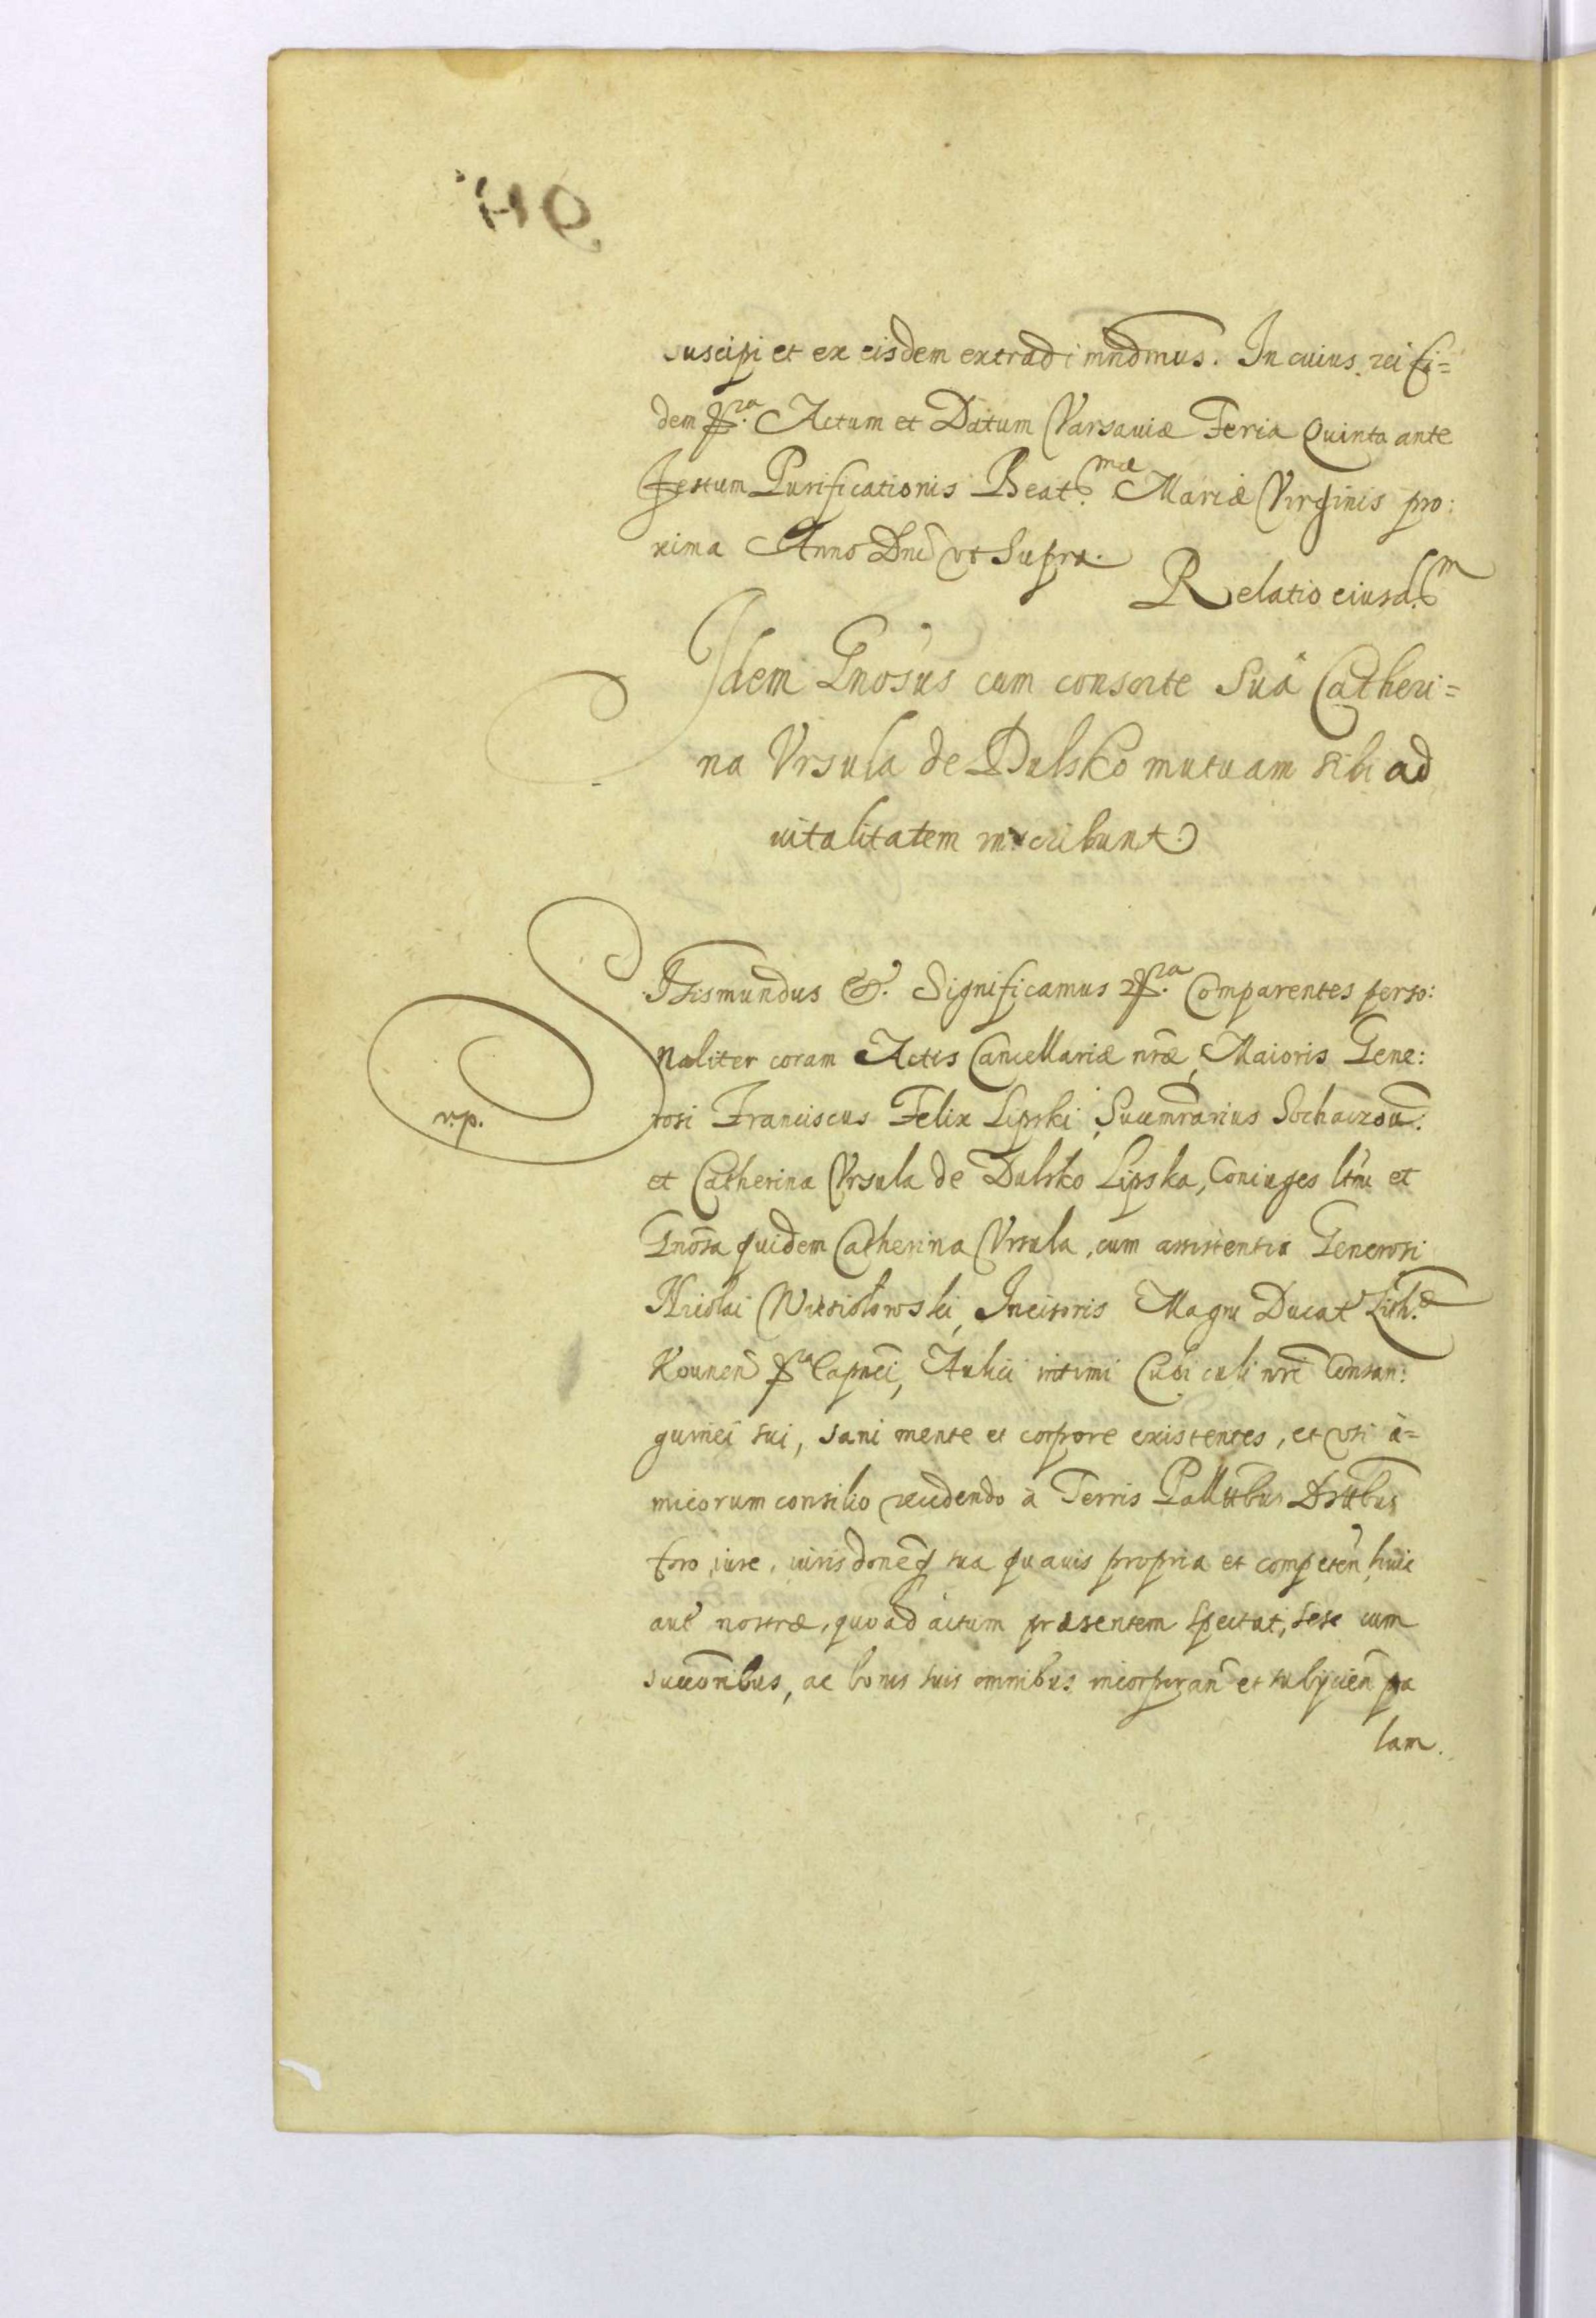 suscipi et ex eisdem extradi mndmus. In cuius rei fi=
dem Actum et Datum Varsauiæ Feria Quinta ante
Festum Purificationis Beat.mæ Mariæ Virginis pro:
xima Anno Dni vt Supra.
Relatio eiusd.m
Idem Gnosus cum consorte Suâ Catheri=
na Vrsula de Dulsko mutuam sibi ad
uitalitatem inscribunt
SIgismundus &. Significamus Comparentes perso:
naliter coram Actis Cancellariæ nræ Maioris Gene:
rosi Franciscus Felix Lipski, Succmrarius Sochaczou:
r.p.
et Catherina Vrsula de Dulsko Lipska, Coniuges ltmi et
Gnosa quidem Catherina Vrsula, cum assistentia Generosi
Nicolai Incisoris Magni Ducat Lith.
Kounen Capnei, Aulici intimi Cubiculi nri Consan:
guinei sui, sani mente et corpore existentes, et vsi a=
micorum consilio recedendo à Terris Pallttbus Dsttbus
foro, iure, iurisdoneq sua quauis propria et competen, huic
aut nostræ, quo ad actum præsentem spectat, sese cum
succoribus, ac bonis suis omnibus incorporan et subijcien pa
lam.